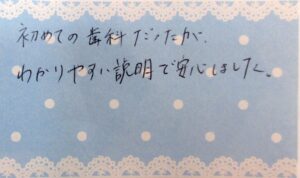 初めての歯科だったが、
わかりやすい説明で安心しました。